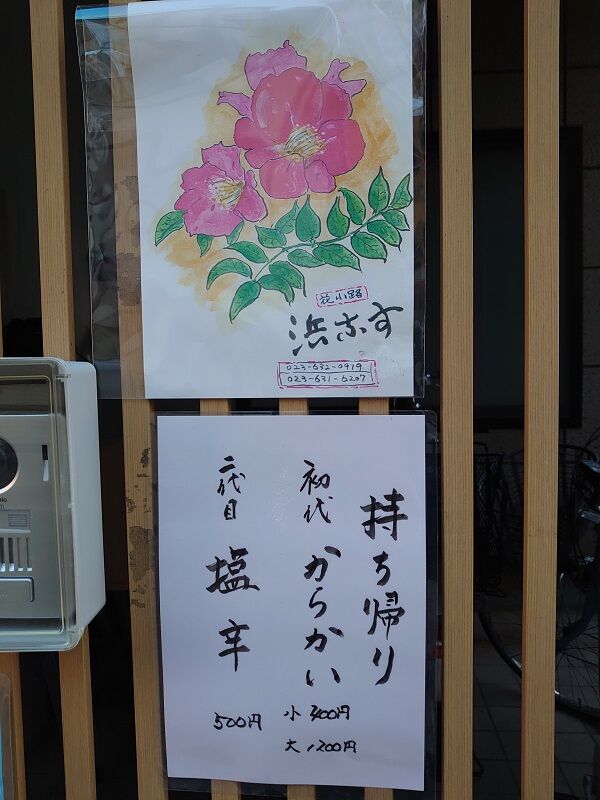 花小路
浜なす
023-632-0919
023-631-6207
持ち帰り
初代 からかい
小
大 1200円
二代目 塩辛
500円